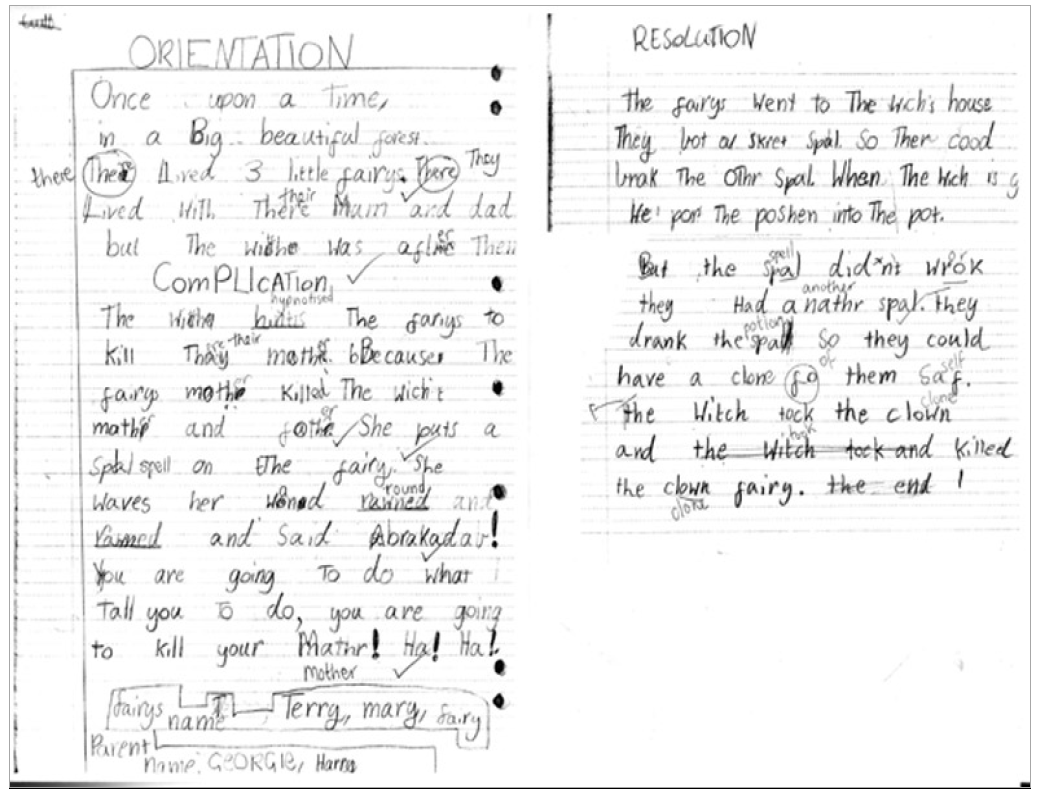 ORIENTATION
Once upon a Time,
in a Big beautiful forest.
there There Lived 3 little fairys. There They
their
Lived With There Mum and dad
but The withe was after Them
COMPLICATION
hypnotised
The withe The fariys to
their
kill Thay mothe. bBecause The
fairys mother killed The wich's
mather and fother She puts a
Spal spell on The fairy. She
round
waves her wand rawned and
rawned and Said Abrakadab!
You are going To do what I
Tall you To do, you are going
to kill your Mathr! Ha! Ha!
mother
fairys name Terry, mary, fairy
Parent
name: GEORGIE, Harra
RESOLUTION
The fairys Went to The wich's house
They bot a skret Spal. So Ther cood
brak The Othr Spal. When The Wich is
We por The poshen into The pot.
spell
But the spal did'nt wrok
another
they Had a nathr spal. They
potion
drank the spall So they could
of self
have a clone fo them saf.
clone
the Witch tock the clown
took
and the Witch tock and killed
the clown fairy. the end !
clone